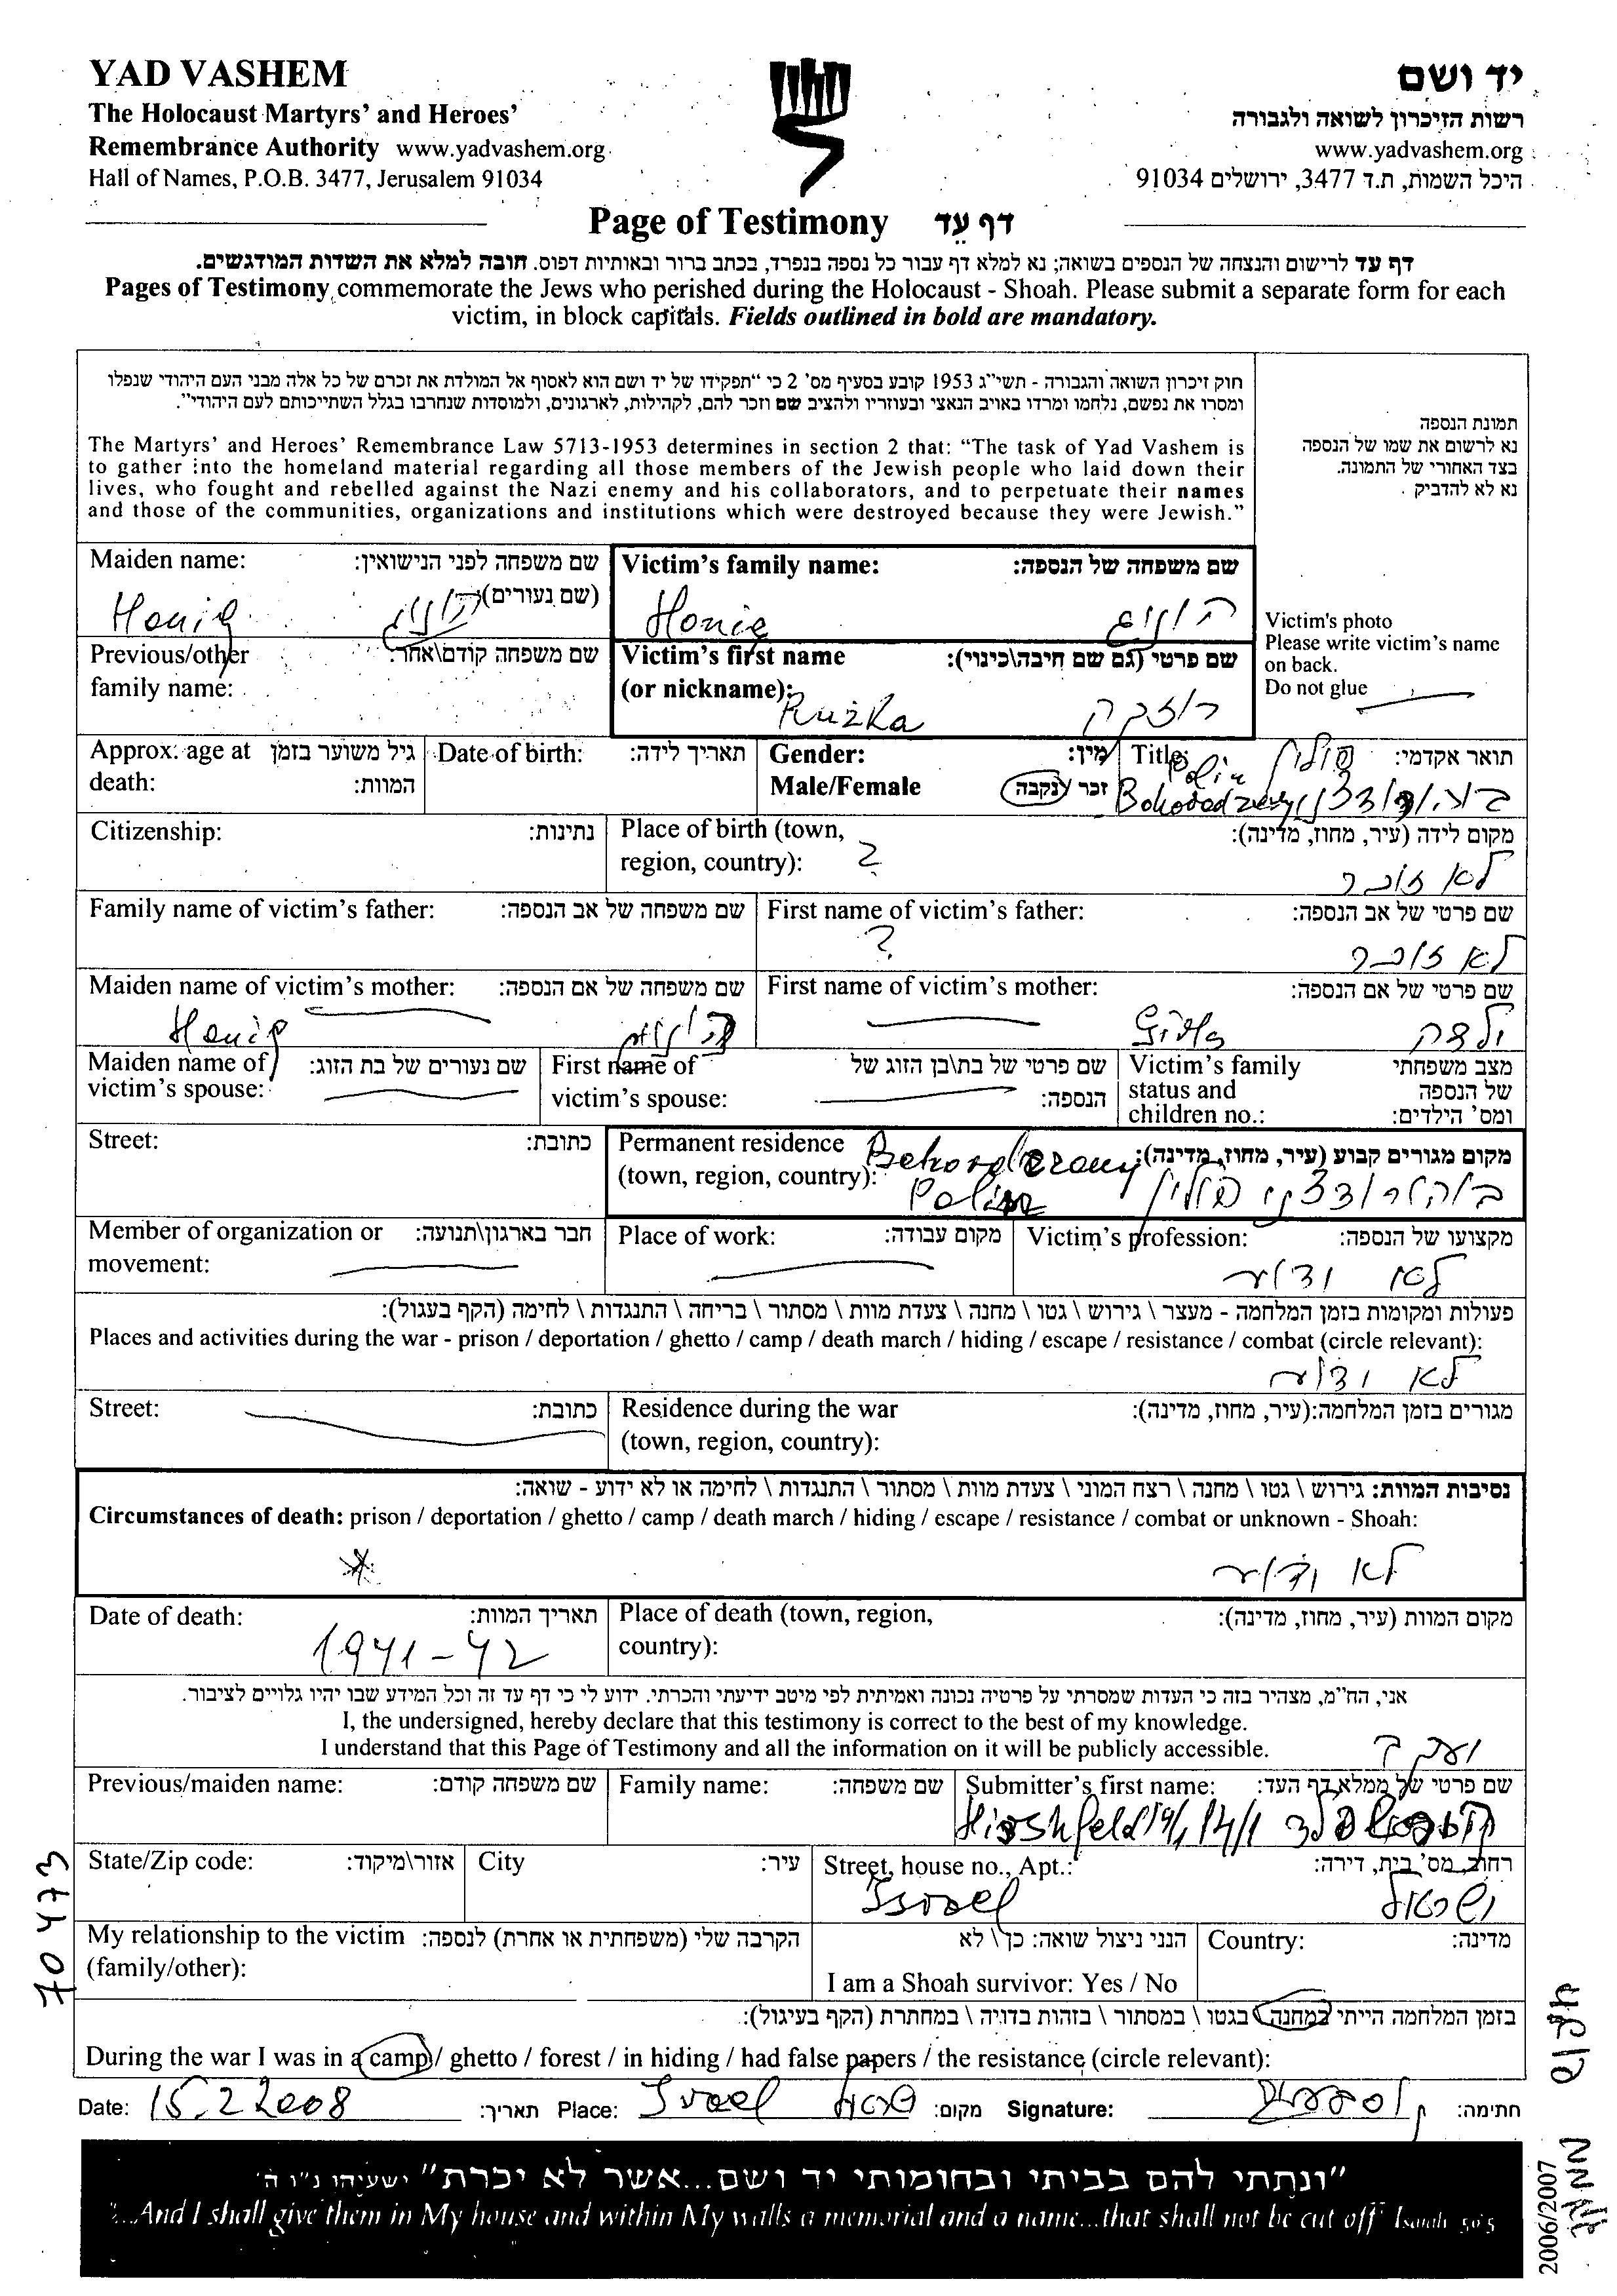 YAD VASHEM
The Holocaust Martyrs' and Heroes'
Remembrance Authority www.yadvashem.org
Hall of Names, P.O.B. 3477, Jerusalem 91034
יד ושם
רשות הזיכרון לשואה ולגבורה
www.yadvashem.org
היכל השמות, ת.ד 3477, ירושלים 91034
Page of Testimony דף עֵד
דף עֵד לרישום והנצחה של הנספים בשואה; נא למלא דף עבור כל נספה בנפרד, בכתב ברור ובאותיות דפוס. חובה למלא את השדות המודגשים.
Pages of Testimony commemorate the Jews who perished during the Holocaust - Shoah. Please submit a separate form for each
victim, in block capitals. Fields outlined in bold are mandatory.
חוק זיכרון השואה והגבורה - תשי"ג 1953 קובע בסעיף מס' 2 כי "תפקידו של יד ושם הוא לאסוף אל המולדת את זכרם של כל אלה מבני העם היהודי שנפלו
ומסרו את נפשם, נלחמו ומרדו באויב הנאצי ובעוזריו ולהציב שם וזכר להם, לקהילות, לארגונים, ולמוסדות שנחרבו בגלל השתייכותם לעם היהודי".
The Martyrs' and Heroes' Remembrance Law 5713-1953 determines in section 2 that: "The task of Yad Vashem is
to gather into the homeland material regarding all those members of the Jewish people who laid down their
lives, who fought and rebelled against the Nazi enemy and his collaborators, and to perpetuate their names
and those of the communities, organizations and institutions which were destroyed because they were Jewish."
תמונת הנספה
נא לרשום את שמו של הנספה
בצד האחורי של התמונה.
נא לא להדביק
Victim's photo
Please write victim's name
on back.
Do not glue
Maiden name: שם משפחה לפני הנישואין:
(שם נעורים)
Honig הוניג
Victim's family name: שם משפחה של הנספה:
Honig הוניג
Previous/other שם משפחה קודם\אחר:
family name:
Victim's first name שם פרטי (גם שם חיבה\כינוי):
(or nickname):
Ružka רוזקה
Approx. age at גיל משוער בזמן
death: המוות:
Date of birth: תאריך לידה:
Gender: מין:
Male/Female זכר / נקבה
Title: תואר אקדמי:
Polin פולין
Citizenship: נתינות:
Place of birth (town, מקום לידה (עיר, מחוז, מדינה):
region, country): ?
לא זוכר
Family name of victim's father: שם משפחה של אב הנספה:
First name of victim's father: שם פרטי של אב הנספה:
? לא זוכר
Maiden name of victim's mother: שם משפחה של אם הנספה:
Honig הוניג
First name of victim's mother: שם פרטי של אם הנספה:
Maiden name of שם נעורים של בת הזוג:
victim's spouse:
First name of שם פרטי של בת\בן הזוג של
victim's spouse: הנספה:
Victim's family מצב משפחתי
status and של הנספה
children no.: ומס' הילדים:
Street: כתובת:
Permanent residence מקום מגורים קבוע (עיר, מחוז, מדינה):
(town, region, country):
פולין
Member of organization or חבר בארגון\תנועה:
movement:
Place of work: מקום עבודה:
Victim's profession: מקצועו של הנספה:
לא ידוע
פעולות ומקומות בזמן המלחמה - מעצר \ גירוש \ גטו \ מחנה \ צעדת מוות \ מסתור \ בריחה \ התנגדות \ לחימה (הקף בעגול):
Places and activities during the war - prison / deportation / ghetto / camp / death march / hiding / escape / resistance / combat (circle relevant):
לא ידוע
Street: כתובת:
Residence during the war מגורים בזמן המלחמה:(עיר, מחוז, מדינה):
(town, region, country):
נסיבות המוות: גירוש \ גטו \ מחנה \ רצח המוני \ צעדת מוות \ מסתור \ התנגדות \ לחימה או לא ידוע - שואה:
Circumstances of death: prison / deportation / ghetto / camp / death march / hiding / escape / resistance / combat or unknown - Shoah:
* לא ידוע
Date of death: תאריך המוות:
1941-42
Place of death (town, region, מקום המוות (עיר, מחוז, מדינה):
country):
אני, הח"מ, מצהיר בזה כי העדות שמסרתי על פרטיה נכונה ואמיתית לפי מיטב ידיעתי והכרתי. ידוע לי כי דף עד זה וכל המידע שבו יהיו גלויים לציבור.
I, the undersigned, hereby declare that this testimony is correct to the best of my knowledge.
I understand that this Page of Testimony and all the information on it will be publicly accessible.
יעקב
Previous/maiden name: שם משפחה קודם:
Family name: שם משפחה:
Submitter's first name: שם פרטי של ממלא דף העד:
Hirshfeld
State/Zip code: אזור\מיקוד:
City עיר:
Street, house no., Apt.: רחוב, מס' בית, דירה:
Israel ישראל
My relationship to the victim הקרבה שלי (משפחתית או אחרת) לנספה:
(family/other):
הנני ניצול שואה: כן \ לא
I am a Shoah survivor: Yes / No
Country: מדינה:
בזמן המלחמה הייתי במחנה \ בגטו \ במסתור \ בזהות בדויה \ במחתרת (הקף בעיגול):
During the war I was in a camp / ghetto / forest / in hiding / had false papers / the resistance (circle relevant):
Date: 15.2 2008 תאריך: Place: Israel ישראל מקום: Signature: חתימה:
"ונתתי להם בביתי ובחומותי יד ושם...אשר לא יכרת" ישעיהו נ"ו ה'
"...And I shall give them in My house and within My walls a memorial and a name...that shall not be cut off" Isaiah 56:5
70473
2006/2007